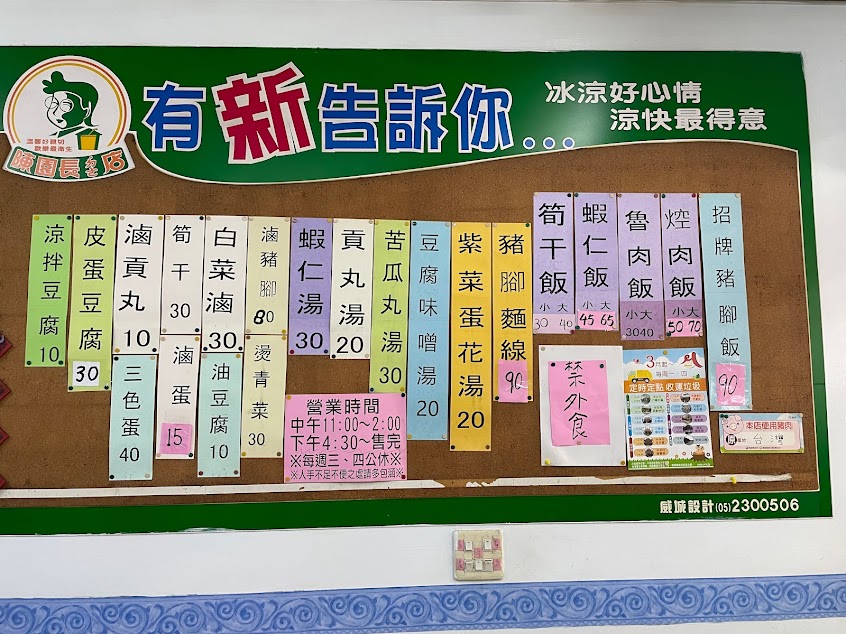 溫馨好親切
歡樂最衛生
陳園長ㄉㄜ店
有新告訴你...
冰涼好心情
涼快最得意
招牌豬腳飯 90
焢肉飯 小50 大70
魯肉飯 小30 大40
蝦仁飯 小45 大65
筍干飯 小30 大40
豬腳麵線 90
紫菜蛋花湯 20
豆腐味噌湯 20
苦瓜丸湯 30
貢丸湯 20
蝦仁湯 30
滷豬腳 80
白菜滷 30
筍干 30
滷貢丸 10
皮蛋豆腐 30
涼拌豆腐 10
燙青菜 30
油豆腐 10
滷蛋 15
三色蛋 40
營業時間
中午11:00~2:00
下午4:30~售完
※每週三、四公休※
※人手不足不便之處請多包涵※
禁外食
3月起
定時定點 收運垃圾
本店使用豬肉
台灣
威城設計(05)2300506